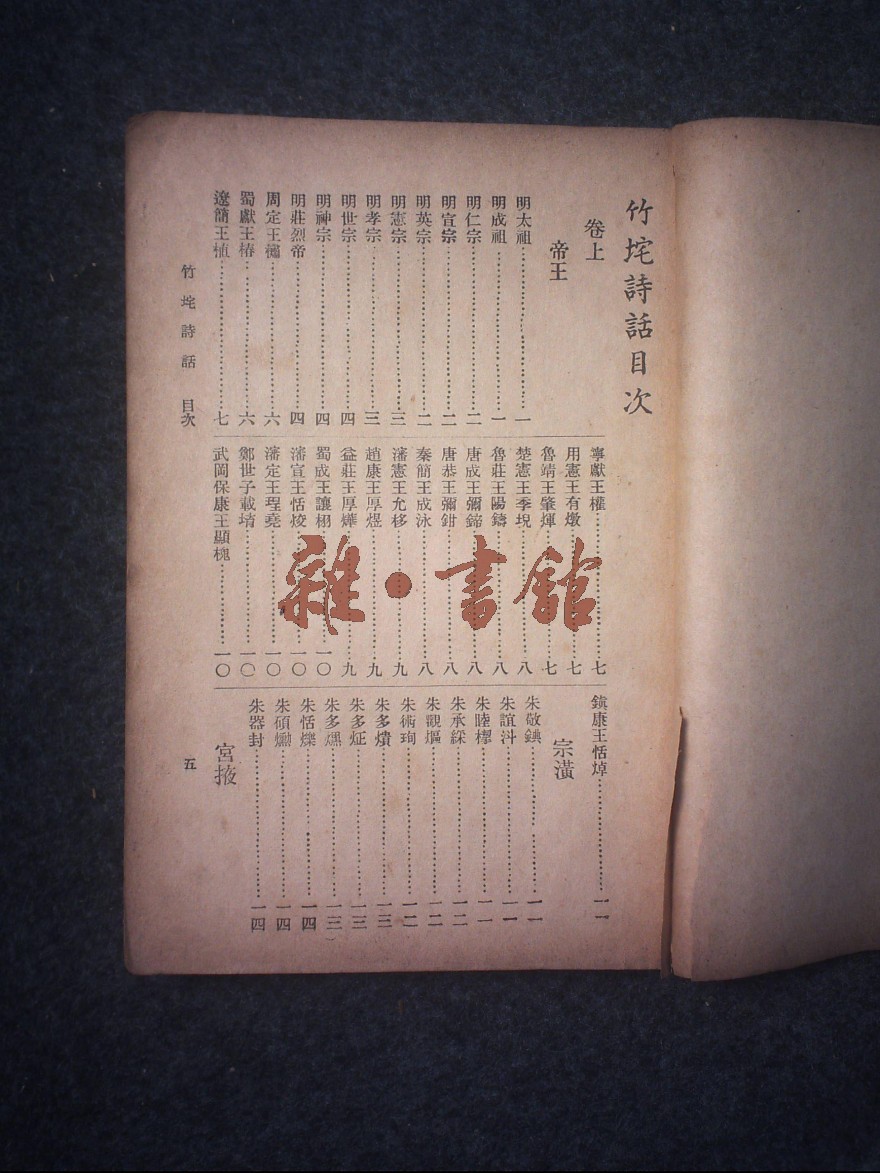 竹垞詩話目次
卷上
帝王
明太祖……一
明成祖……一
明仁宗……二
明宣宗……二
明英宗……二
明憲宗……三
明孝宗……三
明世宗……四
明神宗……四
明莊烈帝……四
周定王橚……六
蜀獻王椿……六
遼簡王植……七
寧獻王權……七
用憲王有燉……七
魯靖王肇煇……七
楚憲王季堄……八
魯莊王陽鑄……八
唐成王彌鍗……八
唐恭王彌鉗……八
秦簡王成泳……八
瀋憲王允栘……九
趙康王厚煜……九
益莊王厚燁……九
蜀成王讓栩……一〇
瀋宣王恬烄……一〇
瀋定王珵堯……一〇
鄭世子載堉……一〇
武岡保康王顯槐……一〇
鎮康王恬焯……一一
宗潢
朱敬鉷……一一
朱誼㳆……一一
朱睦㮮……一一
朱承綵……一二
朱觀熰……一二
朱術珣……一二
朱多熿……一三
朱多炡……一三
朱多㷲……一三
朱恬爍……一四
朱碩㸅……一四
朱器封……一四
宮掖
竹垞詩話 目次
五
雜·書館